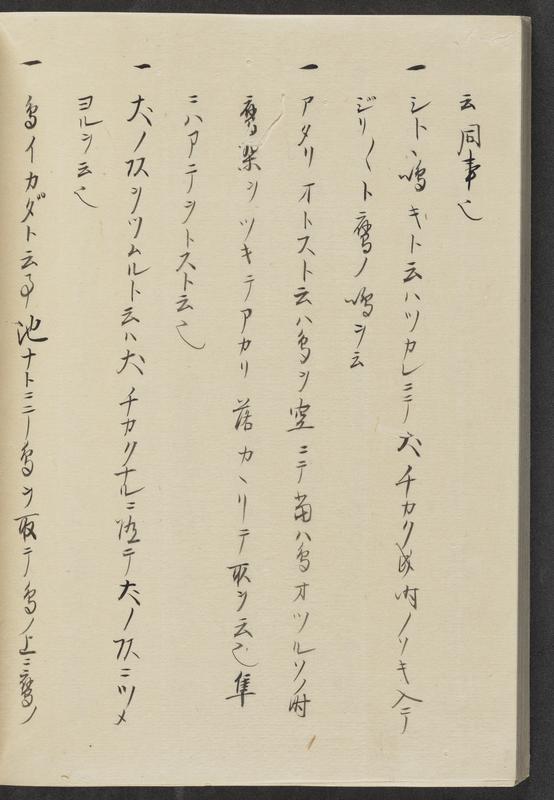 云同事也
一 シトヽ鳴キト云ハツカレニテ犬チカク成時ノソキ入テ
ジリ〳〵ト鷹ノ鳴ヲ云
一 アタリオトスト云ハ鳥ヲ空ニテ当ハ鳥オツルソノ時
鷹ヲツキテアカリ落カヽリテ取ヲ云也隼
ニハアテヲトスト云也
一 犬ノフスヲツムルト云ハ犬チカクナルニ随テ犬ノフスニツメ
ヨルヲ云也
一 鳥イカダト云事池ナトニテ鳥ヲ取テ鳥ノ上ニ鷹ノ